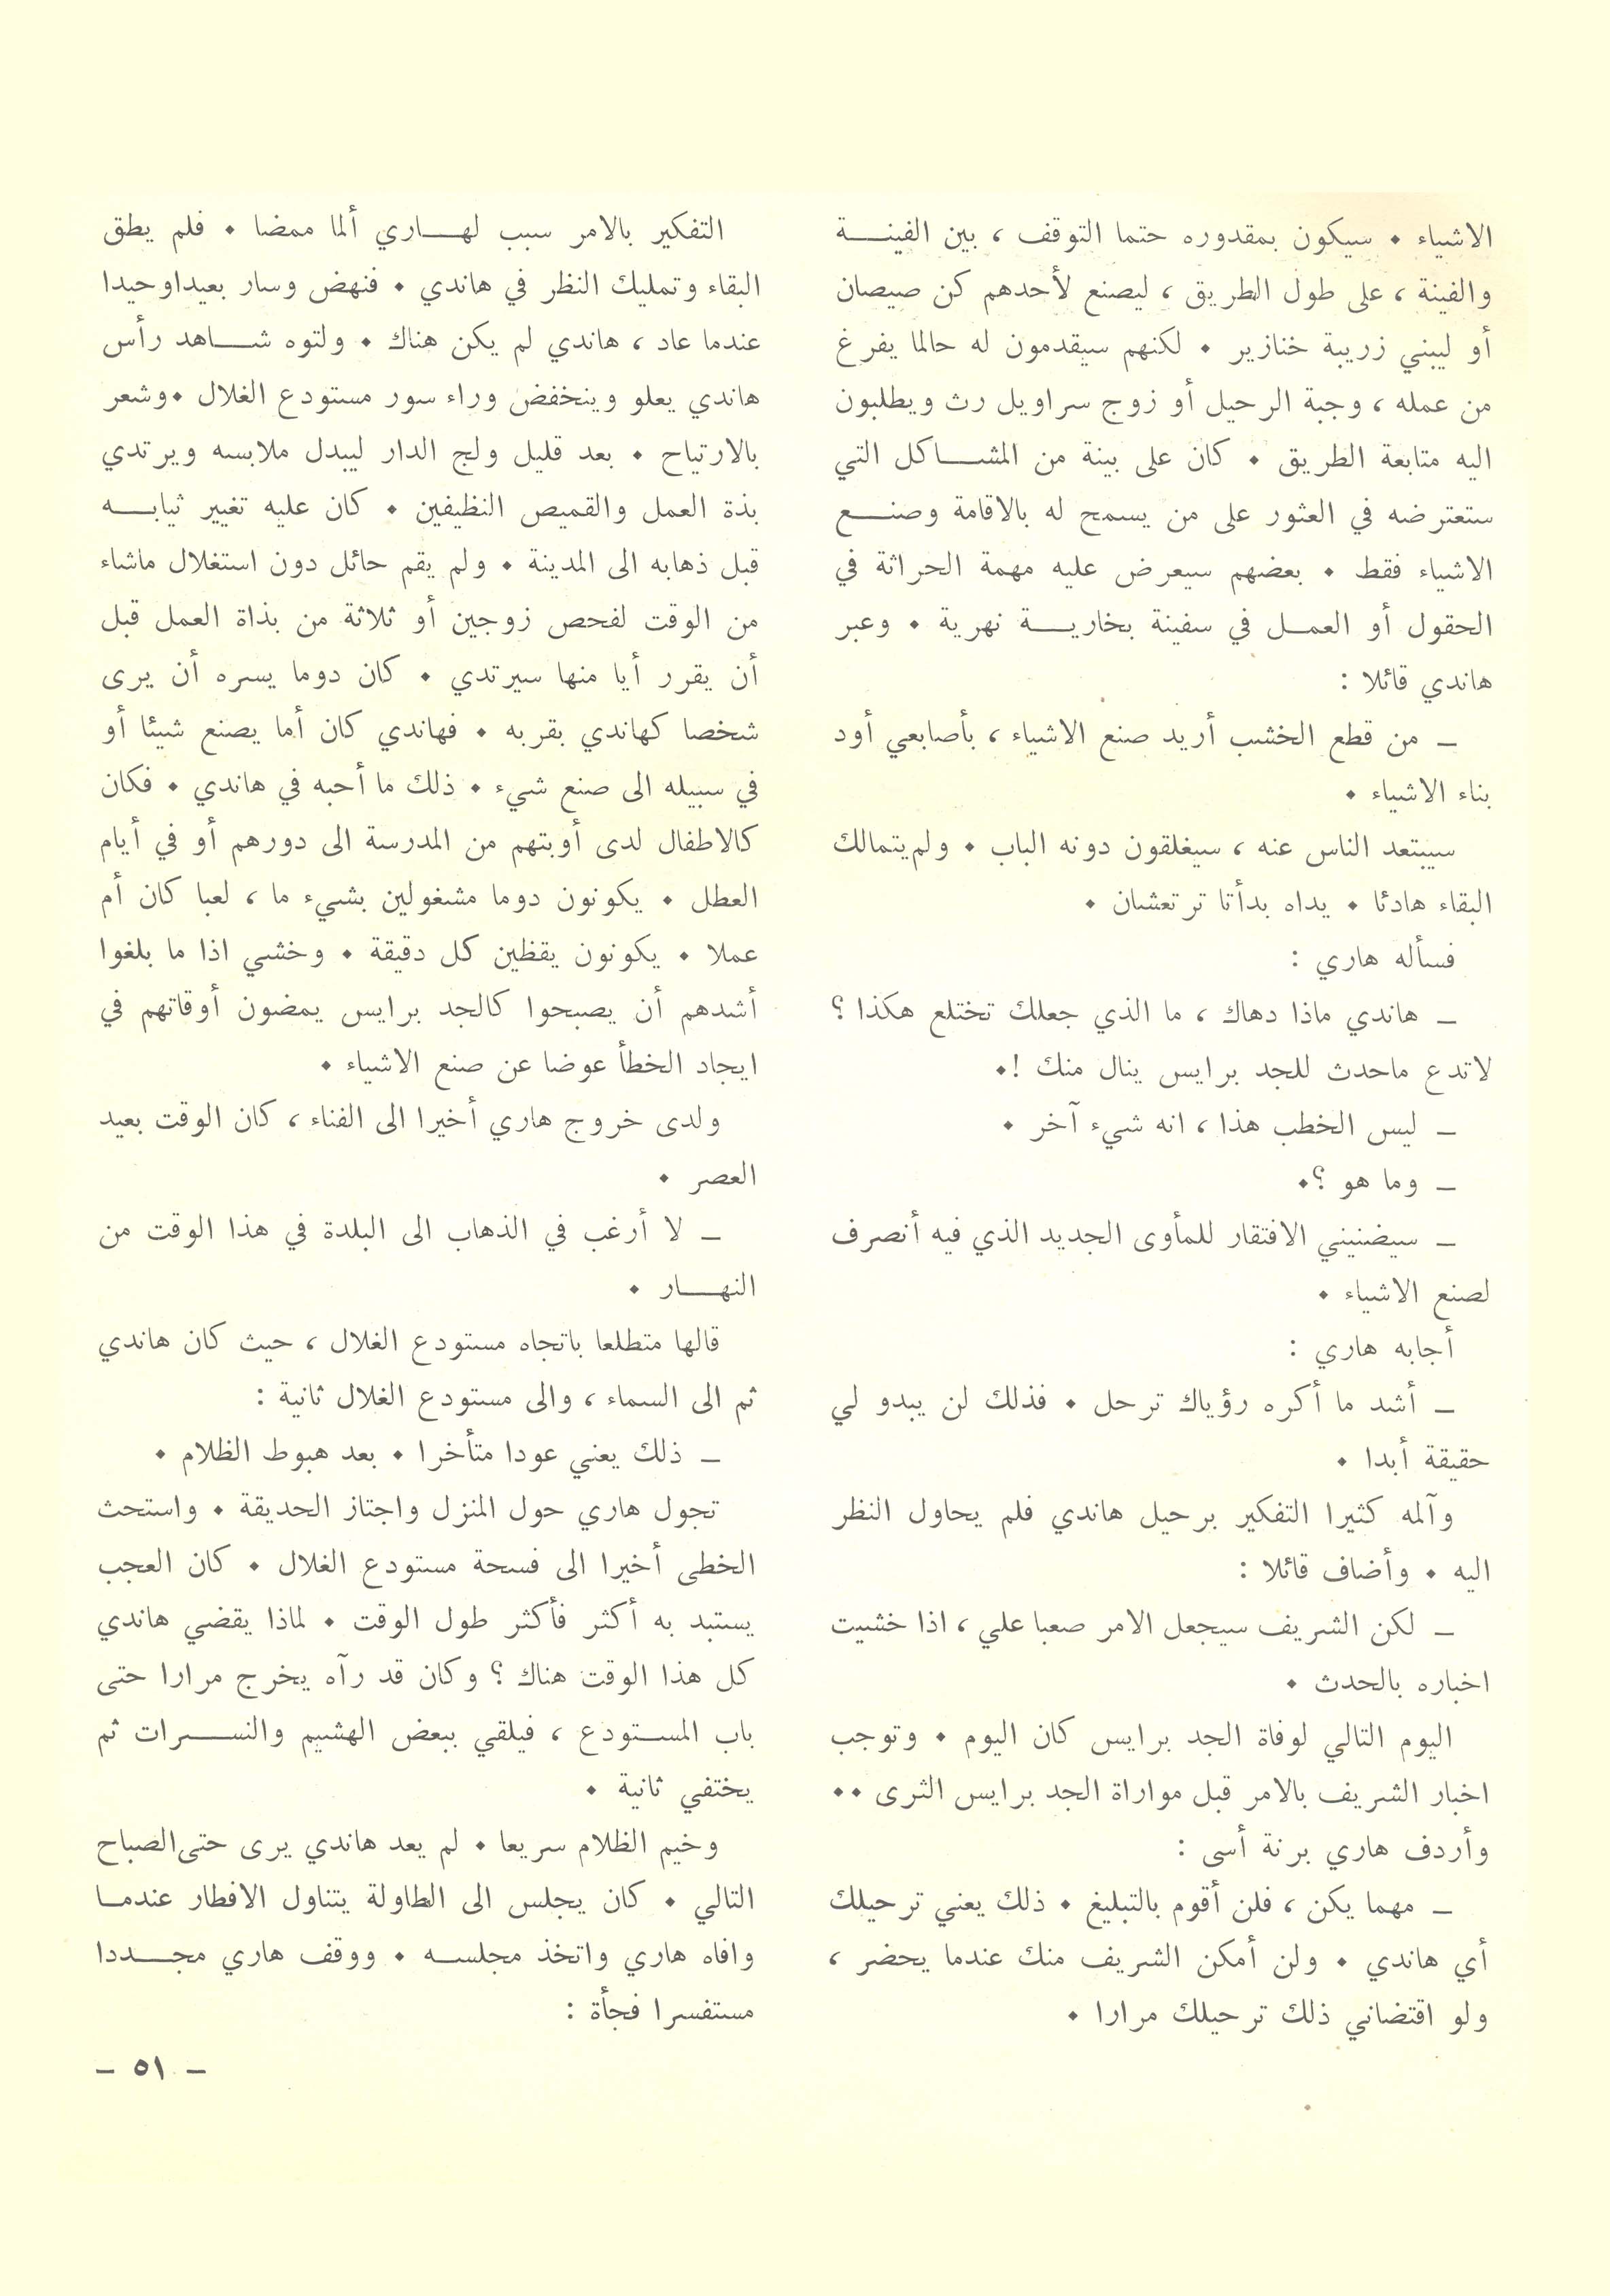 الاشياء ٠ سيكون بمقدوره حتما التوقف ، بين الفينـــة
والفينة ، على طول الطريق ، ليصنع لأحدهم كن صيصان
أو ليبني زريبة خنازير ٠ لكنهم سيقدمون له حالما يفرغ
من عمله ، وجبة الرحيل أو زوج سراويل رث ويطلبون
اليه متابعة الطريق ٠ كان على بينة من المشـــاكل التي
ستعترضه في العثور على من يسمح له بالاقامة وصنـــع
الاشياء فقط ٠ بعضهم سيعرض عليه مهمة الحراثة في
الحقول أو العمــل في سفينة بخاريـــة نهرية ٠ وعبر
هاندي قائلا :
ـ من قطع الخشب أريد صنع الاشياء ، بأصابعي أود
بناء الاشياء ٠
سيبتعد الناس عنه ، سيغلقون دونه الباب ٠ ولم يتمالك
البقاء هادئا ٠ يداه بدأتا ترتعشان ٠
فسأله هاري :
ـ هاندي ماذا دهاك ، ما الذي جعلك تختلع هكذا ؟
لاتدع ماحدث للجد برايس ينال منك !٠
ـ ليس الخطب هذا ، انه شيء آخر ٠
ـ وما هو ؟٠
ـ سيضنيني الافتقار للمأوى الجديد الذي فيه أنصرف
لصنع الاشياء ٠
أجابه هاري :
ـ أشد ما أكره رؤياك ترحل ٠ فذلك لن يبدو لي
حقيقة أبدا ٠
وآلمه كثيرا التفكير برحيل هاندي فلم يحاول النظر
اليه ٠ وأضاف قائلا :
ـ لكن الشريف سيجعل الامر صعبا علي ، اذا خشيت
اخباره بالحدث ٠
اليوم التالي لوفاة الجد برايس كان اليوم ٠ وتوجب
اخبار الشريف بالامر قبل مواراة الجد برايس الثرى ٠٠
وأردف هاري برنة أسى :
ـ مهما يكن ، فلن أقوم بالتبليغ ٠ ذلك يعني ترحيلك
أي هاندي ٠ ولن أمكن الشريف منك عندما يحضر ،
ولو اقتضاني ذلك ترحيلك مرارا ٠
التفكير بالامر سبب لهـــاري ألما ممضا ٠ فلم يطق
البقاء وتمليك النظر في هاندي ٠ فنهض وسار بعيداوحيدا
عندما عاد ، هاندي لم يكن هناك ٠ ولتوه شـــاهد رأس
هاندي يعلو وينخفض وراء سور مستودع الغلال ٠وشعر
بالارتياح ٠ بعد قليل ولج الدار ليبدل ملابسه ويرتدي
بذة العمل والقميص النظيفين ٠ كان عليه تغيير ثيابـــه
قبل ذهابه الى المدينة ٠ ولم يقم حائل دون استغلال ماشاء
من الوقت لفحص زوجين أو ثلاثة من بذاة العمل قبل
أن يقرر أيا منها سيرتدي ٠ كان دوما يسره أن يرى
شخصا كهاندي بقربه ٠ فهاندي كان أما يصنع شيئا أو
في سبيله الى صنع شيء ٠ ذلك ما أحبه في هاندي ٠ فكان
كالاطفال لدى أوبتهم من المدرسة الى دورهم أو في أيام
العطل ٠ يكونون دوما مشغولين بشيء ما ، لعبا كان أم
عملا ٠ يكونون يقظين كل دقيقة ٠ وخشي اذا ما بلغوا
أشدهم أن يصبحوا كالجد برايس يمضون أوقاتهم في
ايجاد الخطأ عوضا عن صنع الاشياء ٠
ولدى خروج هاري أخيرا الى الفناء ، كان الوقت بعيد
العصر ٠
ـ لا أرغب في الذهاب الى البلدة في هذا الوقت من
النهـــار ٠
قالها متطلعا باتجاه مستودع الغلال ، حيث كان هاندي
ثم الى السماء ، والى مستودع الغلال ثانية :
ـ ذلك يعني عودا متأخرا ٠ بعد هبوط الظلام ٠
تجول هاري حول المنزل واجتاز الحديقة ٠ واستحث
الخطى أخيرا الى فسحة مستودع الغلال ٠ كان العجب
يستبد به أكثر فأكثر طول الوقت ٠ لماذا يقضي هاندي
كل هذا الوقت هناك ؟ وكان قد رآه يخرج مرارا حتى
باب المســتودع ، فيلقي ببعض الهشيم والنســـرات ثم
يختفي ثانية ٠
وخيم الظلام سريعا ٠ لم يعد هاندي يرى حتى الصباح
التالي ٠ كان يجلس الى الطاولة يتناول الافطار عندمــا
وافاه هاري واتخذ مجلســه ٠ ووقف هاري مجـــددا
مستفسرا فجأة :
ـ ٥١ ـ